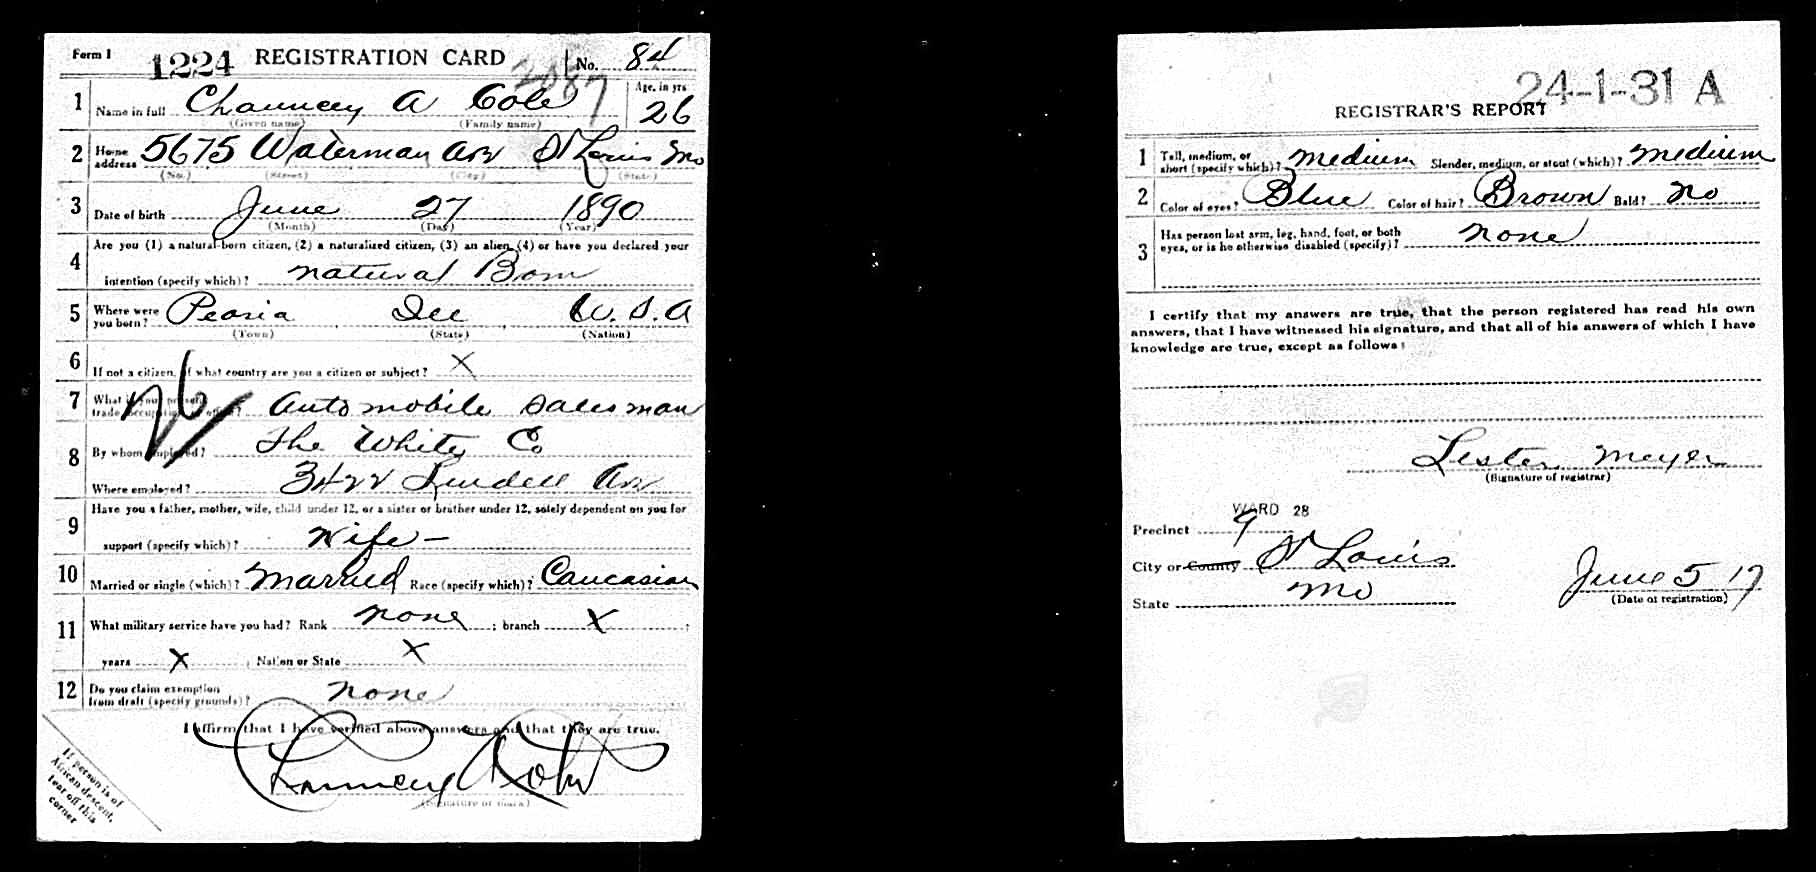 Form 1 1224 REGISTRATION CARD No. 84
1 Name in full Chauncey A Cole Age, in yrs 26
(Given name) (Family name)
2 Home address 5675 Waterman Ave St Louis Mo
(No.) (Street) (City) (State)
3 Date of birth June 27 1890
(Month) (Day) (Year)
Are you (1) a natural-born citizen, (2) a naturalized citizen, (3) an alien, (4) or have you declared your
4 intention (specify which)? natural Born
5 Where were you born? Peoria Ill U.S.A
(Town) (State) (Nation)
6 If not a citizen, of what country are you a citizen or subject? X
7 What is your present trade, occupation, or office? Automobile Salesman
8 By whom employed? The White Co
Where employed? 3422 Lindell Ave
9 Have you a father, mother, wife, child under 12, or a sister or brother under 12, solely dependent on you for
support (specify which)? Wife –
10 Married or single (which)? Married Race (specify which)? Caucasian
11 What military service have you had? Rank none ; branch X ;
years X Nation or State X
12 Do you claim exemption
from draft (specify grounds)? none
I affirm that I have verified above answers and that they are true.
(Signature or mark)
If person is of
African descent,
tear off this
corner
24-1-31 A
REGISTRAR'S REPORT
1 Tall, medium, or short (specify which)? Medium Slender, medium, or stout (which)? Medium
2 Color of eyes? Blue Color of hair? Brown Bald? No
3 Has person lost arm, leg, hand, foot, or both
eyes, or is he otherwise disabled (specify)? none
I certify that my answers are true, that the person registered has read his own
answers, that I have witnessed his signature, and that all of his answers of which I have
knowledge are true, except as follows:
Lester Meyer
(Signature of registrar)
WARD 28
Precinct 9
City or County St Louis
State Mo
June 5 17
(Date of registration)